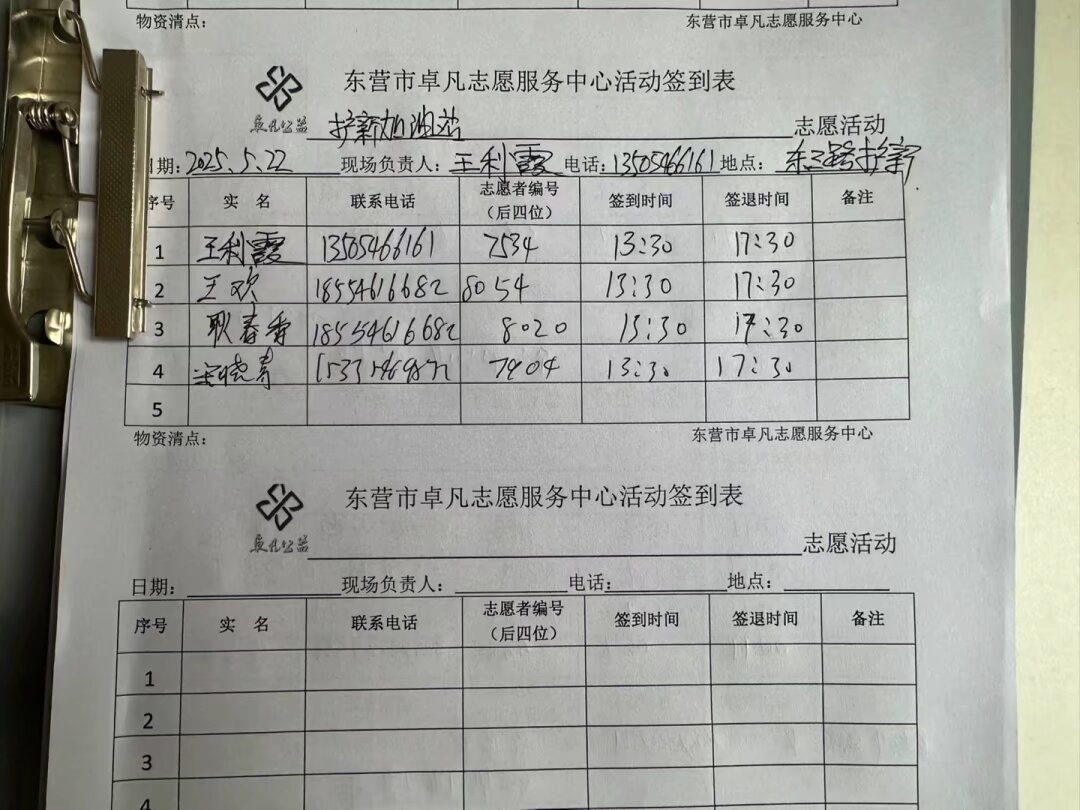 物资清点： 东营市卓凡志愿服务中心
东营市卓凡志愿服务中心活动签到表
卓凡公益 护薪加油站 志愿活动
日期：2025.5.22 现场负责人：王利霞 电话：13505466161 地点：东三路护薪
序号 实 名 联系电话 志愿者编号（后四位） 签到时间 签退时间 备注
1 王利霞 13505466161 7534 13:30 17:30
2 王欢 18554616682 8054 13:30 17:30
3 耿春香 18554616682 8020 13:30 17:30
4 晓青 7904 13:30 17:30
5
物资清点： 东营市卓凡志愿服务中心
东营市卓凡志愿服务中心活动签到表
卓凡公益 志愿活动
日期： 现场负责人： 电话： 地点：
序号 实 名 联系电话 志愿者编号（后四位） 签到时间 签退时间 备注
1
2
3
4